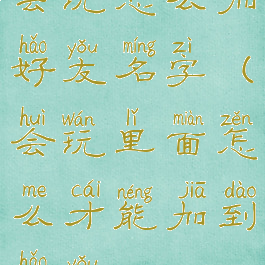 hǎo yǒu míng zì
好友名字（
huì wán lǐ miàn zěn
会玩里面怎
me cái néng jiā dào
么才能加到
hǎo yǒu